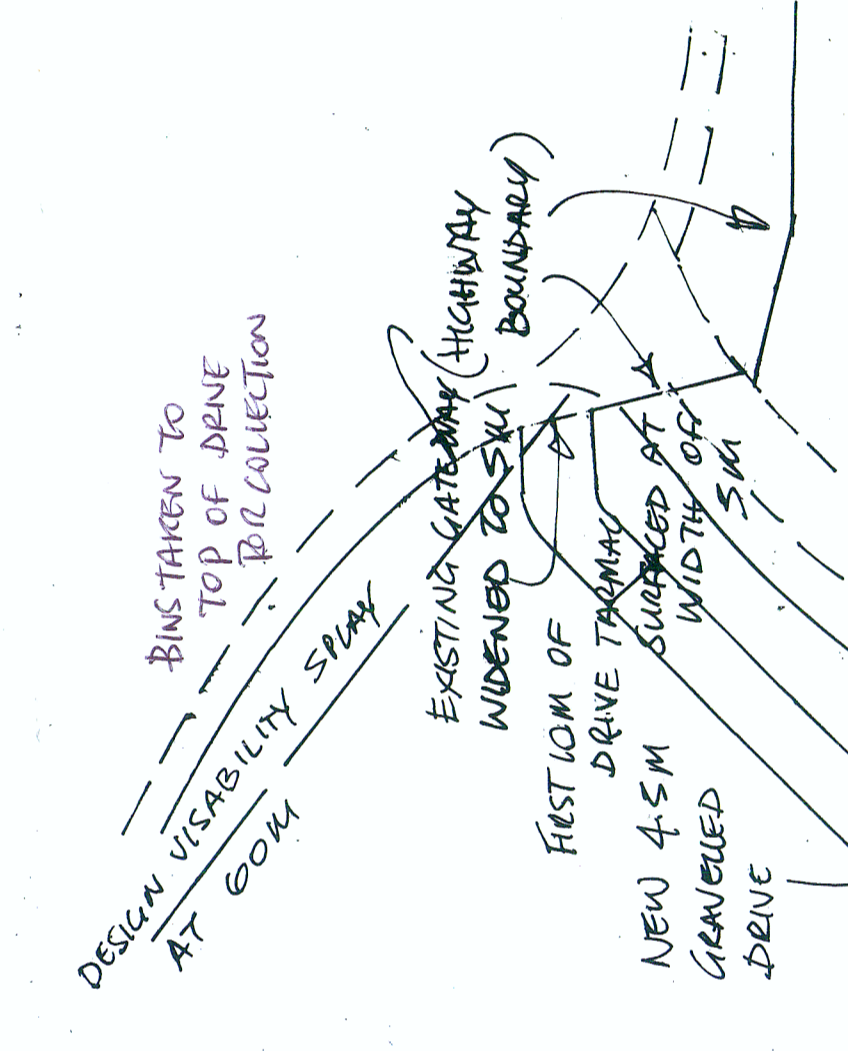 BINS TAKEN TO
TOP OF DRIVE
FOR COLLECTION
DESIGN VISABILITY SPLAY
AT 60M
EXISTING GATEWAY
WIDENED TO 5M
(HIGHWAY
BOUNDARY)
FIRST 10M OF
DRIVE TARMAC
SURFACED AT
WIDTH OF
5M
NEW 4.5M
GRAVELLED
DRIVE